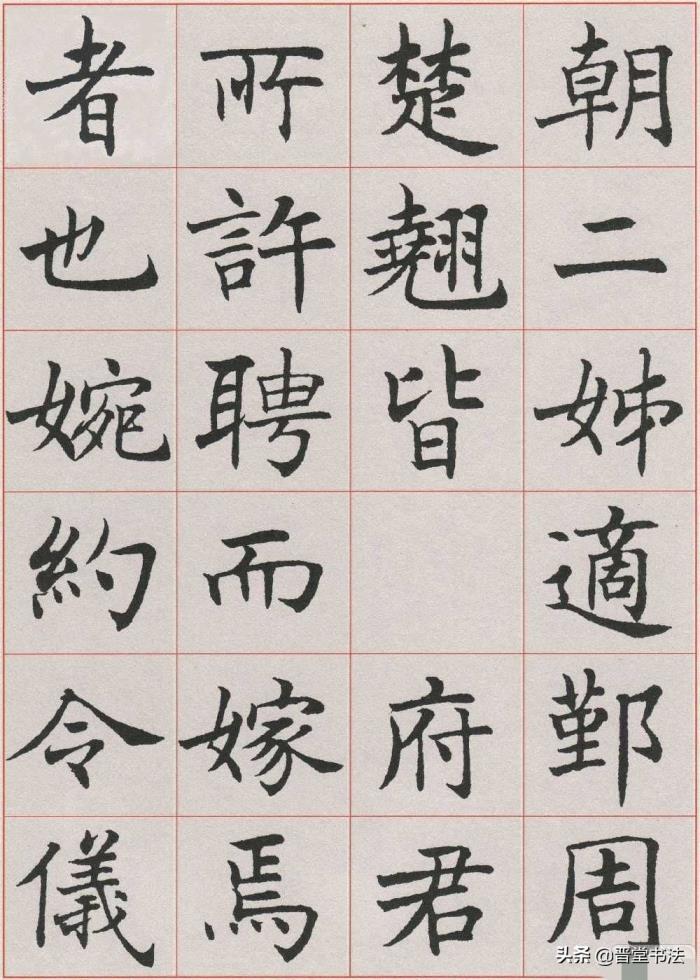 朝二姊適鄞周
楚翹皆 府君
所許聘而嫁焉
者也婉約令儀
头条 @晋堂书法